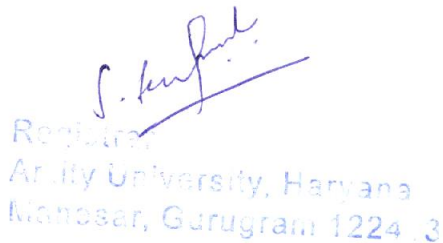 Registrar
Amity University, Haryana
Manesar, Gurugram